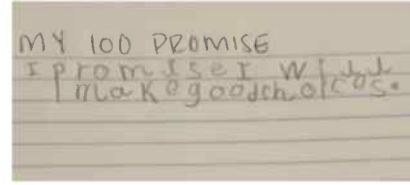 MY 100 PROMISE
I promiser I will
makegoodchoicos.